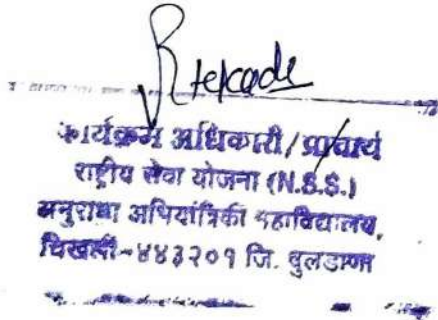 कार्यक्रम अधिकारी/प्राचार्य
राष्ट्रीय सेवा योजना (N.S.S.)
अनुराधा अभियांत्रिकी महाविद्यालय,
चिखली-४४३२०१ जि. बुलडाणा